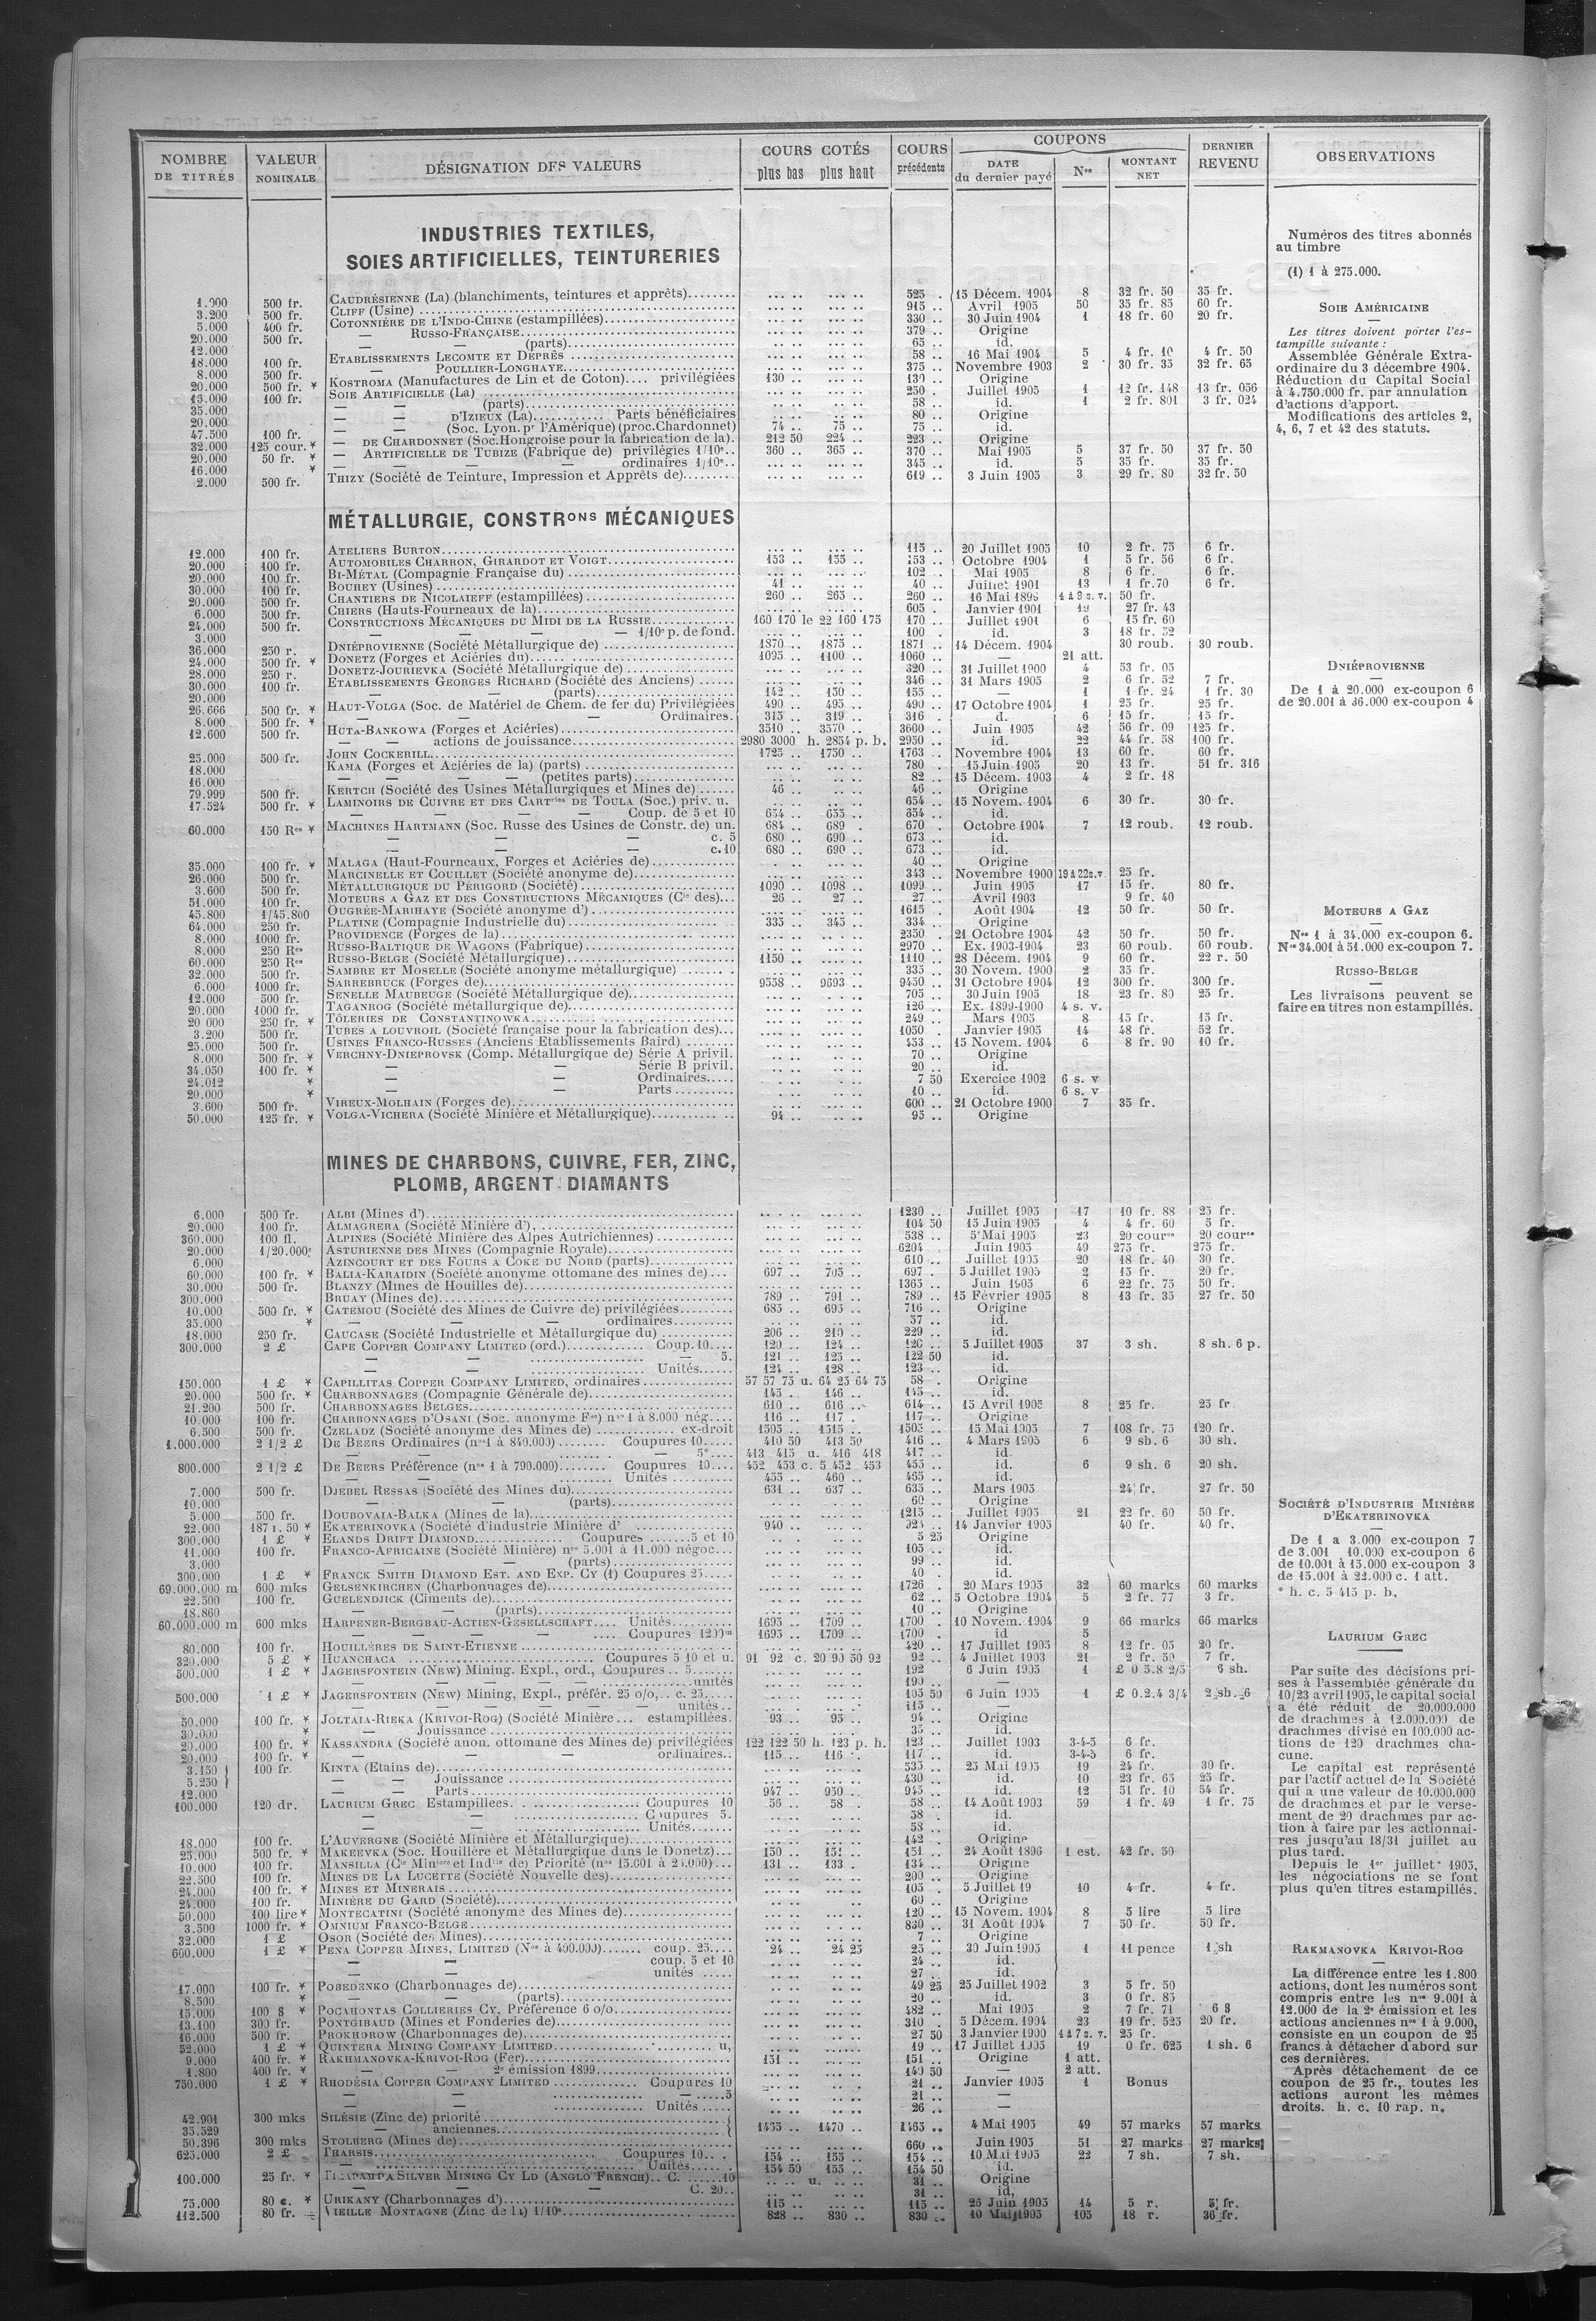 NOMBRE DE TITRES | VALEUR NOMINALE | DÉSIGNATION DES VALEURS | COURS COTÉS plus bas plus haut | COURS précédents | COUPONS DATE du dernier payé | Nos | MONTANT NET | DERNIER REVENU | OBSERVATIONS
INDUSTRIES TEXTILES,
SOIES ARTIFICIELLES, TEINTURERIES
500 fr. CAUDRÉSIENNE (La) (blanchiments, teintures et apprêts) 525 . 15 Décem. 1904 8 32 fr. 50 35 fr.
3.200 500 fr. CLIFF (Usine) 915 .. Avril 1905 50 35 fr. 85 60 fr.
5.000 400 fr. COTONNIÈRE DE L'INDO-CHINE (estampillées) 330 .. 30 Juin 1904 1 18 fr. 60 20 fr.
20.000 500 fr. — RUSSO-FRANÇAISE 379 .. Origine
12.000 — — (parts) 65 .. id.
18.000 100 fr. ETABLISSEMENTS LECOMTE ET DEPRÈS 58 .. 16 Mai 1904 5 4 fr. 10 4 fr. 50
8.000 500 fr. — POULLIER-LONGHAYE 375 .. Novembre 1903 2 30 fr. 35 32 fr. 65
20.000 500 fr. * KOSTROMA (Manufactures de Lin et de Coton).... privilégiées 130 .. 130 .. Origine
15.000 100 fr. SOIE ARTIFICIELLE (La) 250 . Juillet 1905 1 12 fr. 148 13 fr. 056
35.000 — — (parts) 58 .. id. 1 2 fr. 801 3 fr. 024
20.000 — — D'IZIEUX (La) Parts bénéficiaires 80 .. Origine
47.500 100 fr. — — (Soc. Lyon. pr l'Amérique) (proc. Chardonnet) 74 .. 75 .. 75 .. id.
32.000 125 cour. * — DE CHARDONNET (Soc. Hongroise pour la fabrication de la). 212 50 224 .. 223 .. Origine
20.000 50 fr. * — ARTIFICIELLE DE TUBIZE (Fabrique de) privilégies 1/10e.. 360 .. 365 .. 370 .. Mai 1905 5 37 fr. 50 37 fr. 50
16.000 * — — — — ordinaires 1/10e.. 345 .. id. 5 35 fr. 35 fr.
2.000 500 fr. THIZY (Société de Teinture, Impression et Apprêts de) 619 .. 3 Juin 1905 3 29 fr. 80 32 fr. 50
MÉTALLURGIE, CONSTRONS MÉCANIQUES
12.000 100 fr. ATELIERS BURTON 115 .. 20 Juillet 1905 10 2 fr. 75 6 fr.
20.000 100 fr. AUTOMOBILES CHARRON, GIRARDOT ET VOIGT 153 .. 155 .. 153 .. Octobre 1904 1 5 fr. 56 6 fr.
20.000 100 fr. BI-MÉTAL (Compagnie Française du) 102 .. Mai 1905 8 6 fr. 6 fr.
30.000 100 fr. BOUHEY (Usines) 41 .. 40 .. Juillet 1901 13 1 fr. 70 6 fr.
20.000 500 fr. CHANTIERS DE NICOLAIEFF (estampillées) 260 .. 265 .. 260 .. 16 Mai 4 à 8 s. v. 50 fr.
6.000 500 fr. CHIERS (Hauts-Fourneaux de la) 605 . Janvier 1901 19 27 fr. 43
24.000 500 fr. CONSTRUCTIONS MÉCANIQUES DU MIDI DE LA RUSSIE 160 170 le 22 160 175 170 .. Juillet 1901 6 15 fr. 60
3.000 — — — — 1/10e p. de fond. 100 . id. 3 18 fr. 52
36.000 250 r. DNIÉPROVIENNE (Société Métallurgique de) 1870 .. 1875 .. 1871 .. 14 Décem. 1904 30 roub. 30 roub.
24.000 500 fr. * DONETZ (Forges et Aciéries du) 1095 .. 1100 .. 1060 .. — 21 att.
28.000 250 r. DONETZ-JOURIEVKA (Société Métallurgique de) 320 .. 31 Juillet 1900 4 53 fr. 05
30.000 100 fr. ETABLISSEMENTS GEORGES RICHARD (Société des Anciens) 346 .. 31 Mars 1905 2 6 fr. 52 7 fr.
20.000 — — (parts) 142 .. 150 .. 155 .. — 1 1 fr. 24 1 fr. 30
26.666 500 fr. * HAUT-VOLGA (Soc. de Matériel de Chem. de fer du) Privilégiées 490 .. 495 .. 490 .. 17 Octobre 1904 1 25 fr. 25 fr.
8.000 500 fr. * — — — Ordinaires. 315 .. 319 .. 316 . d. 6 15 fr. 15 fr.
12.600 500 fr. HUTA-BANKOWA (Forges et Aciéries) 3510 .. 3570 .. 3600 .. Juin 1905 42 56 fr. 09 125 fr.
— — actions de jouissance 2980 3000 h. 2854 p. b. 2950 .. id. 22 44 fr. 58 100 fr.
25.000 500 fr. JOHN COCKERILL 1725 .. 1750 .. 1763 .. Novembre 1904 13 60 fr. 60 fr.
18.000 KAMA (Forges et Aciéries de la) (parts) 780 .. 15 Juin 1905 20 13 fr. 51 fr. 316
16.000 — — — — (petites parts) 82 .. 15 Décem. 1903 4 2 fr. 18
79.999 500 fr. KERTCH (Société des Usines Métallurgiques et Mines de) 46 .. 46 .. Origine
17.524 500 fr. * LAMINOIRS DE CUIVRE ET DES CARTries DE TOULA (Soc.) priv. u. 654 .. 15 Novem. 1904 6 30 fr. 30 fr.
— — — — Coup. de 5 et 10 654 .. 655 .. 654 .. id.
60.000 150 Res * MACHINES HARTMANN (Soc. Russe des Usines de Constr. de) un. 684 .. 689 . 670 . Octobre 1904 7 12 roub. 12 roub.
— — — c. 5 680 .. 690 .. 673 .. id.
— — — c. 10 680 .. 690 .. 673 .. id.
35.000 100 fr. * MALAGA (Haut-Fourneaux, Forges et Aciéries de) 40 .. Origine
26.000 500 fr. MARCINELLE ET COUILLET (Société anonyme de) 343 .. Novembre 1900 19 à 22 s. v. 25 fr.
3.600 500 fr. MÉTALLURGIQUE DU PÉRIGORD (Société) 1090 .. 1098 .. 1099 .. Juin 1905 17 15 fr. 80 fr.
51.000 100 fr. MOTEURS A GAZ ET DES CONSTRUCTIONS MÉCANIQUES (Cie des) 26 .. 27 .. 27 .. Avril 1903 9 fr. 40
45.800 1/45.800 OUGRÉE-MARIHAYE (Société anonyme d') 1615 .. Août 1904 12 50 fr. 50 fr.
64.000 250 fr. PLATINE (Compagnie Industrielle du) 335 .. 345 .. 334 .. Origine
8.000 1000 fr. PROVIDENCE (Forges de la) 2350 .. 21 Octobre 1904 42 50 fr. 50 fr.
8.000 250 Res RUSSO-BALTIQUE DE WAGONS (Fabrique) 2970 .. Ex. 1903-1904 23 60 roub. 60 roub.
60.000 250 Res RUSSO-BELGE (Société Métallurgique) 1150 .. 1110 .. 28 Décem. 1904 9 60 fr. 22 r. 50
32.000 500 fr. SAMBRE ET MOSELLE (Société anonyme métallurgique) 335 .. 30 Novem. 1900 2 35 fr.
6.000 1000 fr. SARREBRUCK (Forges de) 9558 .. 9693 .. 9450 .. 31 Octobre 1904 12 300 fr. 300 fr.
12.000 500 fr. SENELLE MAUBEUGE (Société Métallurgique de) 705 .. 30 Juin 1905 18 23 fr. 80 25 fr.
20.000 1000 fr. TAGANROG (Société métallurgique de) 126 .. Ex. 1899-1900 4 s. v.
20 000 250 fr. * TÔLERIES DE CONSTANTINOWKA 249 .. Mars 1905 8 15 fr. 15 fr.
3.200 500 fr. TUBES A LOUVROIL (Société française pour la fabrication des) 1050 . Janvier 1905 14 48 fr. 52 fr.
25.000 500 fr. USINES FRANCO-RUSSES (Anciens Etablissements Baird) 453 .. 15 Novem. 1904 6 8 fr. 90 10 fr.
8.000 500 fr. * VERCHNY-DNIEPROVSK (Comp. Métallurgique de) Série A privil. 70 .. Origine
34.050 100 fr. * — — Série B privil. 20 .. id.
24.012 * — — Ordinaires 7 50 Exercice 1902 6 s. v
20.000 * — — Parts 10 .. id. 6 s. v
3.600 500 fr. VIREUX-MOLHAIN (Forges de) 600 .. 21 Octobre 1900 7 35 fr.
50.000 125 fr. * VOLGA-VICHERA (Société Minière et Métallurgique) 94 .. 95 .. Origine
MINES DE CHARBONS, CUIVRE, FER, ZINC,
PLOMB, ARGENT DIAMANTS
6.000 500 fr. ALBI (Mines d') 1230 .. Juillet 1905 17 10 fr. 88 25 fr.
20.000 100 fr. ALMAGRERA (Société Minière d') 104 50 15 Juin 1905 4 4 fr. 60 5 fr.
360.000 100 fl. ALPINES (Société Minière des Alpes Autrichiennes) 538 .. 5 Mai 1905 23 20 cour 20 cour
20.000 1/20.000e ASTURIENNE DES MINES (Compagnie Royale) 6204 . Juin 1905 49 275 fr. 275 fr.
6.000 AZINCOURT ET DES FOURS A COKE DU NORD (parts) 610 .. Juillet 1905 20 18 fr. 40 30 fr.
60.000 100 fr. * BALIA-KARAIDIN (Société anonyme ottomane des mines de) 697 .. 705 .. 697 .. 5 Juillet 1905 2 15 fr. 20 fr.
30.000 500 fr. BLANZY (Mines de Houilles de) 1365 .. Juin 1905 6 22 fr. 75 50 fr.
300.000 BRUAY (Mines de) 789 .. 791 .. 789 .. 15 Février 1905 8 13 fr. 35 27 fr. 50
10.000 500 fr. * CATEMOU (Société des Mines de Cuivre de) privilégiées 685 .. 695 .. 716 .. Origine
35.000 * — — — ordinaires 57 .. id.
18.000 250 fr. CAUCASE (Société Industrielle et Métallurgique du) 206 .. 210 .. 229 .. id.
300.000 2 £ CAPE COPPER COMPANY LIMITED (ord.) Coup. 10 120 .. 124 .. 120 .. 5 Juillet 1905 37 3 sh. 8 sh. 6 p.
— — — 5. 121 .. 125 .. 122 50 id.
— — Unités 124 .. 128 .. 123 .. id.
150.000 1 £ * CAPILLITAS COPPER COMPANY LIMITED, ordinaires 57 57 75 u. 64 25 64 75 58 . Origine
20.000 500 fr. * CHARBONNAGES (Compagnie Générale de) 145 .. 146 .. 145 .. id.
21.200 500 fr. CHARBONNAGES BELGES 610 .. 616 .. 614 .. 15 Avril 1905 8 25 fr. 25 fr
10.000 100 fr. CHARBONNAGES D'OSANI (Soc. anonyme Fse) nos 1 à 8.000 nég. 116 .. 117 . 117 .. Origine
6.500 500 fr. CZELADZ (Société anonyme des Mines de) ex-droit 1505 .. 1515 .. 1505 .. 15 Mai 1905 7 108 fr. 75 120 fr.
1.000.000 2 1/2 £ DE BEERS Ordinaires (nos 1 à 840.000) Coupures 10 410 50 413 50 416 .. 4 Mars 1905 6 9 sh. 6 30 sh.
— — — 5* 413 415 u. 416 418 417 .. id.
800.000 2 1/2 £ DE BEERS Préférence (nos 1 à 790.000) Coupures 10 452 453 c. 5 452 453 455 .. id. 6 9 sh. 6 20 sh.
— — Unités 455 .. 460 .. 465 .. id.
7.000 500 fr. DJEBEL RESSAS (Société des Mines du) 631 .. 637 .. 635 .. Mars 1905 24 fr. 27 fr. 50
10.000 — — (parts) 60 .. Origine
5.000 500 fr. DOUBOVAIA-BALKA (Mines de la) 1215 .. Juillet 1905 21 22 fr. 60 50 fr.
22.000 187 r. 50 * EKATERINOVKA (Société d'industrie Minière d') 940 .. 14 Janvier 1905 40 fr. 40 fr.
300.000 1 £ * ELANDS DRIFT DIAMOND Coupures 5 et 10 5 25 Origine
11.000 100 fr. FRANCO-AFRICAINE (Société Minière) nos 5.001 à 11.000 négoc. 105 .. id.
3.000 — — (parts) 99 .. id.
300.000 1 £ * FRANCK SMITH DIAMOND EST. AND EXP. CY (1) Coupures 25 40 .. id.
69.000.000 m 600 mks GELSENKIRCHEN (Charbonnages de) 1726 . 20 Mars 1905 32 60 marks 60 marks
22.500 100 fr. GUELENDJICK (Ciments de) 62 .. 5 Octobre 1904 5 2 fr. 77 3 fr.
18.860 — — (parts) 10 .. Origine
60.000.000 m 600 mks HARPENER-BERGBAU-ACTIEN-GESELLSCHAFT Unités 1695 .. 1709 .. 1700 . 10 Novem. 1904 9 66 marks 66 marks
— — — — Coupures 1200m 1695 .. 1709 .. 1700 . id 5
80.000 100 fr. HOUILLÈRES DE SAINT-ETIENNE 420 .. 17 Juillet 1905 8 12 fr. 05 20 fr.
320.000 5 £ * HUANCHACA Coupures 5 10 et u. 91 92 c. 20 90 50 92 92 .. 4 Juillet 1903 21 2 fr. 50 7 fr.
500.000 1 £ * JAGERSFONTEIN (NEW) Mining. Expl., ord., Coupures .. 5 192 6 Juin 1905 1 £ 0 5.8 2/5 6 sh.
— — — — unités 190 .. —
500.000 1 £ * JAGERSFONTEIN (NEW) Mining, Expl., préfér. 25 o/o, .. c. 25 105 50 6 Juin 1905 1 £ 0.2.4 3/4 2 sh. 6
— — — — unités .. 115 .. —
50.000 100 fr. * JOLTAIA-RIEKA (KRIVOI-ROG) (Société Minière estampillées. 93 .. 95 .. 94 .. Origine
30.000 * — — Jouissance 35 .. id.
20.000 100 fr. * KASSANDRA (Société anon. ottomane des Mines de) privilégiées 122 122 50 h. 123 p. h. 123 .. Juillet 1903 3-4-5 6 fr.
20.000 100 fr. * — — — ordinaires 115 .. 116 . 117 .. id. 3-4-5 6 fr.
3.150 } 100 fr. KINTA (Etains de) 535 .. 25 Mai 1905 19 24 fr. 30 fr.
5.250 } — — Jouissance 430 .. id. 10 23 fr. 65 25 fr.
12.000 — — Parts 947 .. 950 .. 945 .. id. 12 51 fr. 10 54 fr.
100.000 120 dr. LAURIUM GREC Estampillees. Coupures 10 56 .. 58 . 58 .. 14 Août 1903 59 1 fr. 49 1 fr. 75
— — Coupures 5. 58 . id.
— — Unités 58 .. id.
18.000 100 fr. L'AUVERGNE (Société Minière et Métallurgique) 142 .. Origine
25.000 500 fr. * MAKEEVKA (Soc. Houillère et Métallurgique dans le Donetz) 150 .. 151 .. 151 .. 24 Août 1896 1 est. 42 fr. 50
10.000 100 fr. MANSILLA (Cie Minière et Indlle de) Priorité (nos 15.001 à 25.000) 131 .. 133 . 134 .. Origine
22.500 100 fr. MINES DE LA LUCETTE (Société Nouvelle des) 200 .. Origine
24.000 100 fr. * MINES ET MINERAIS 105 . 5 Juillet 19 10 4 fr. 4 fr.
24.000 100 fr. MINIÈRE DU GARD (Société) 60 .. Origine
50.000 100 lire * MONTECATINI (Société anonyme des Mines de) 120 .. 15 Novem. 1904 8 5 lire 5 lire
3.500 1000 fr. * OMNIUM FRANCO-BELGE 830 .. 31 Août 1904 7 50 fr. 50 fr.
32.000 1 £ OSOR (Société des Mines) 7 .. Origine
600.000 1 £ * PENA COPPER MINES, LIMITED (Nos à 400.000) coup. 25 24 .. 24 25 25 .. 30 Juin 1905 1 11 pence 1 sh
— — coup. 5 et 10 24 .. id.
— — unités 27 .. id.
17.000 100 fr. * POBEDENKO (Charbonnages de) 49 25 25 Juillet 1902 3 5 fr. 50
8.500 * — — (parts) 20 .. id. 3 0 fr. 85
15.000 100 $ * POCAHONTAS COLLIERIES CY, Préférence 6 o/o 482 .. Mai 1905 2 7 fr. 71 6 $
13.100 300 fr. PONTGIBAUD (Mines et Fonderies de) 310 . 5 Décem. 1904 23 19 fr. 525 20 fr.
16.000 500 fr. PROKHOROW (Charbonnages de) 27 50 3 Janvier 1900 4 à 7 s. v. 25 fr.
52.000 1 £ * QUINTERA MINING COMPANY LIMITED u, 19 .. 17 Juillet 1905 19 0 fr. 625 1 sh. 6
9.000 400 fr. * RAKHMANOVKA-KRIVOI-ROG (Fer) 151 .. 151 .. Origine 1 att.
1.800 400 fr. * — — 2e émission 1899 140 50 — 2 att.
750.000 1 £ * RHODÉSIA COPPER COMPANY LIMITED Coupures 10 21 .. Janvier 1905 1 Bonus
— — — 5 21 .. —
— — Unités 26 .. —
42.901 300 mks SILÉSIE (Zinc de) priorité }
35.529 — anciennes } 1455 .. 1470 .. 1465 .. 4 Mai 1905 49 57 marks 57 marks
50.396 300 mks STOLBERG (Mines de) 660 .. Juin 1905 51 27 marks 27 marks
625.000 2 £ THARSIS Coupures 10 154 .. 155 .. 154 .. 10 Mai 1905 22 7 sh. 7 sh.
— Unités 154 50 155 .. 154 50 id.
100.000 25 fr. * SILVER MINING CY LD (ANGLO FRENCH) C. 10 u. 31 .. Origine
— — C. 20 31 .. id,
75.000 80 c. * URIKANY (Charbonnages d') 115 .. 115 .. 26 Juin 1905 14 5 r. 5 fr.
112.500 80 fr. VIEILLE MONTAGNE (Zinc de la) 1/10e 828 .. 830 .. 830 .. 10 Mai 1905 105 18 r. 36 fr.
Numéros des titres abonnés
au timbre
(1) 1 à 275.000.
SOIE AMÉRICAINE
Les titres doivent porter l'es-
tampille suivante :
Assemblée Générale Extra-
ordinaire du 3 décembre 1904.
Réduction du Capital Social
à 4.750.000 fr. par annulation
d'actions d'apport.
Modifications des articles 2,
4, 6, 7 et 42 des statuts.
DNIÉPROVIENNE
De 1 à 20.000 ex-coupon 6
de 20.001 à 36.000 ex-coupon 4
MOTEURS A GAZ
Nos 1 à 34.000 ex-coupon 6.
Nos 34.001 à 51.000 ex-coupon 7.
RUSSO-BELGE
Les livraisons peuvent se
faire en titres non estampillés.
SOCIÉTÉ D'INDUSTRIE MINIÈRE
D'EKATERINOVKA
De 1 a 3.000 ex-coupon 7
de 3.001 10.000 ex-coupon 6
de 10.001 à 15.000 ex-coupon 3
de 15.001 à 22.000 c. 1 att.
* h. c. 5 415 p. b.
LAURIUM GREC
Par suite des décisions pri-
ses à l'assemblée générale du
10/23 avril 1905, le capital social
a été réduit de 20.000.000
de drachmes à 12.000.000 de
drachmes divisé en 100.000 ac-
tions de 120 drachmes cha-
cune.
Le capital est représenté
par l'actif actuel de la Société
qui a une valeur de 10.000.000
de drachmes et par le verse-
ment de 20 drachmes par ac-
tion à faire par les actionnai-
res jusqu'au 18/31 juillet au
plus tard.
Depuis le 1er juillet 1905,
les négociations ne se font
plus qu'en titres estampillés.
RAKMANOVKA KRIVOI-ROG
La différence entre les 1.800
actions, dont les numéros sont
compris entre les nos 9.001 à
12.000 de la 2e émission et les
actions anciennes nos 1 à 9.000,
consiste en un coupon de 25
francs à détacher d'abord sur
ces dernières.
Après détachement de ce
coupon de 25 fr., toutes les
actions auront les mêmes
droits. h. c. 10 rap. n.